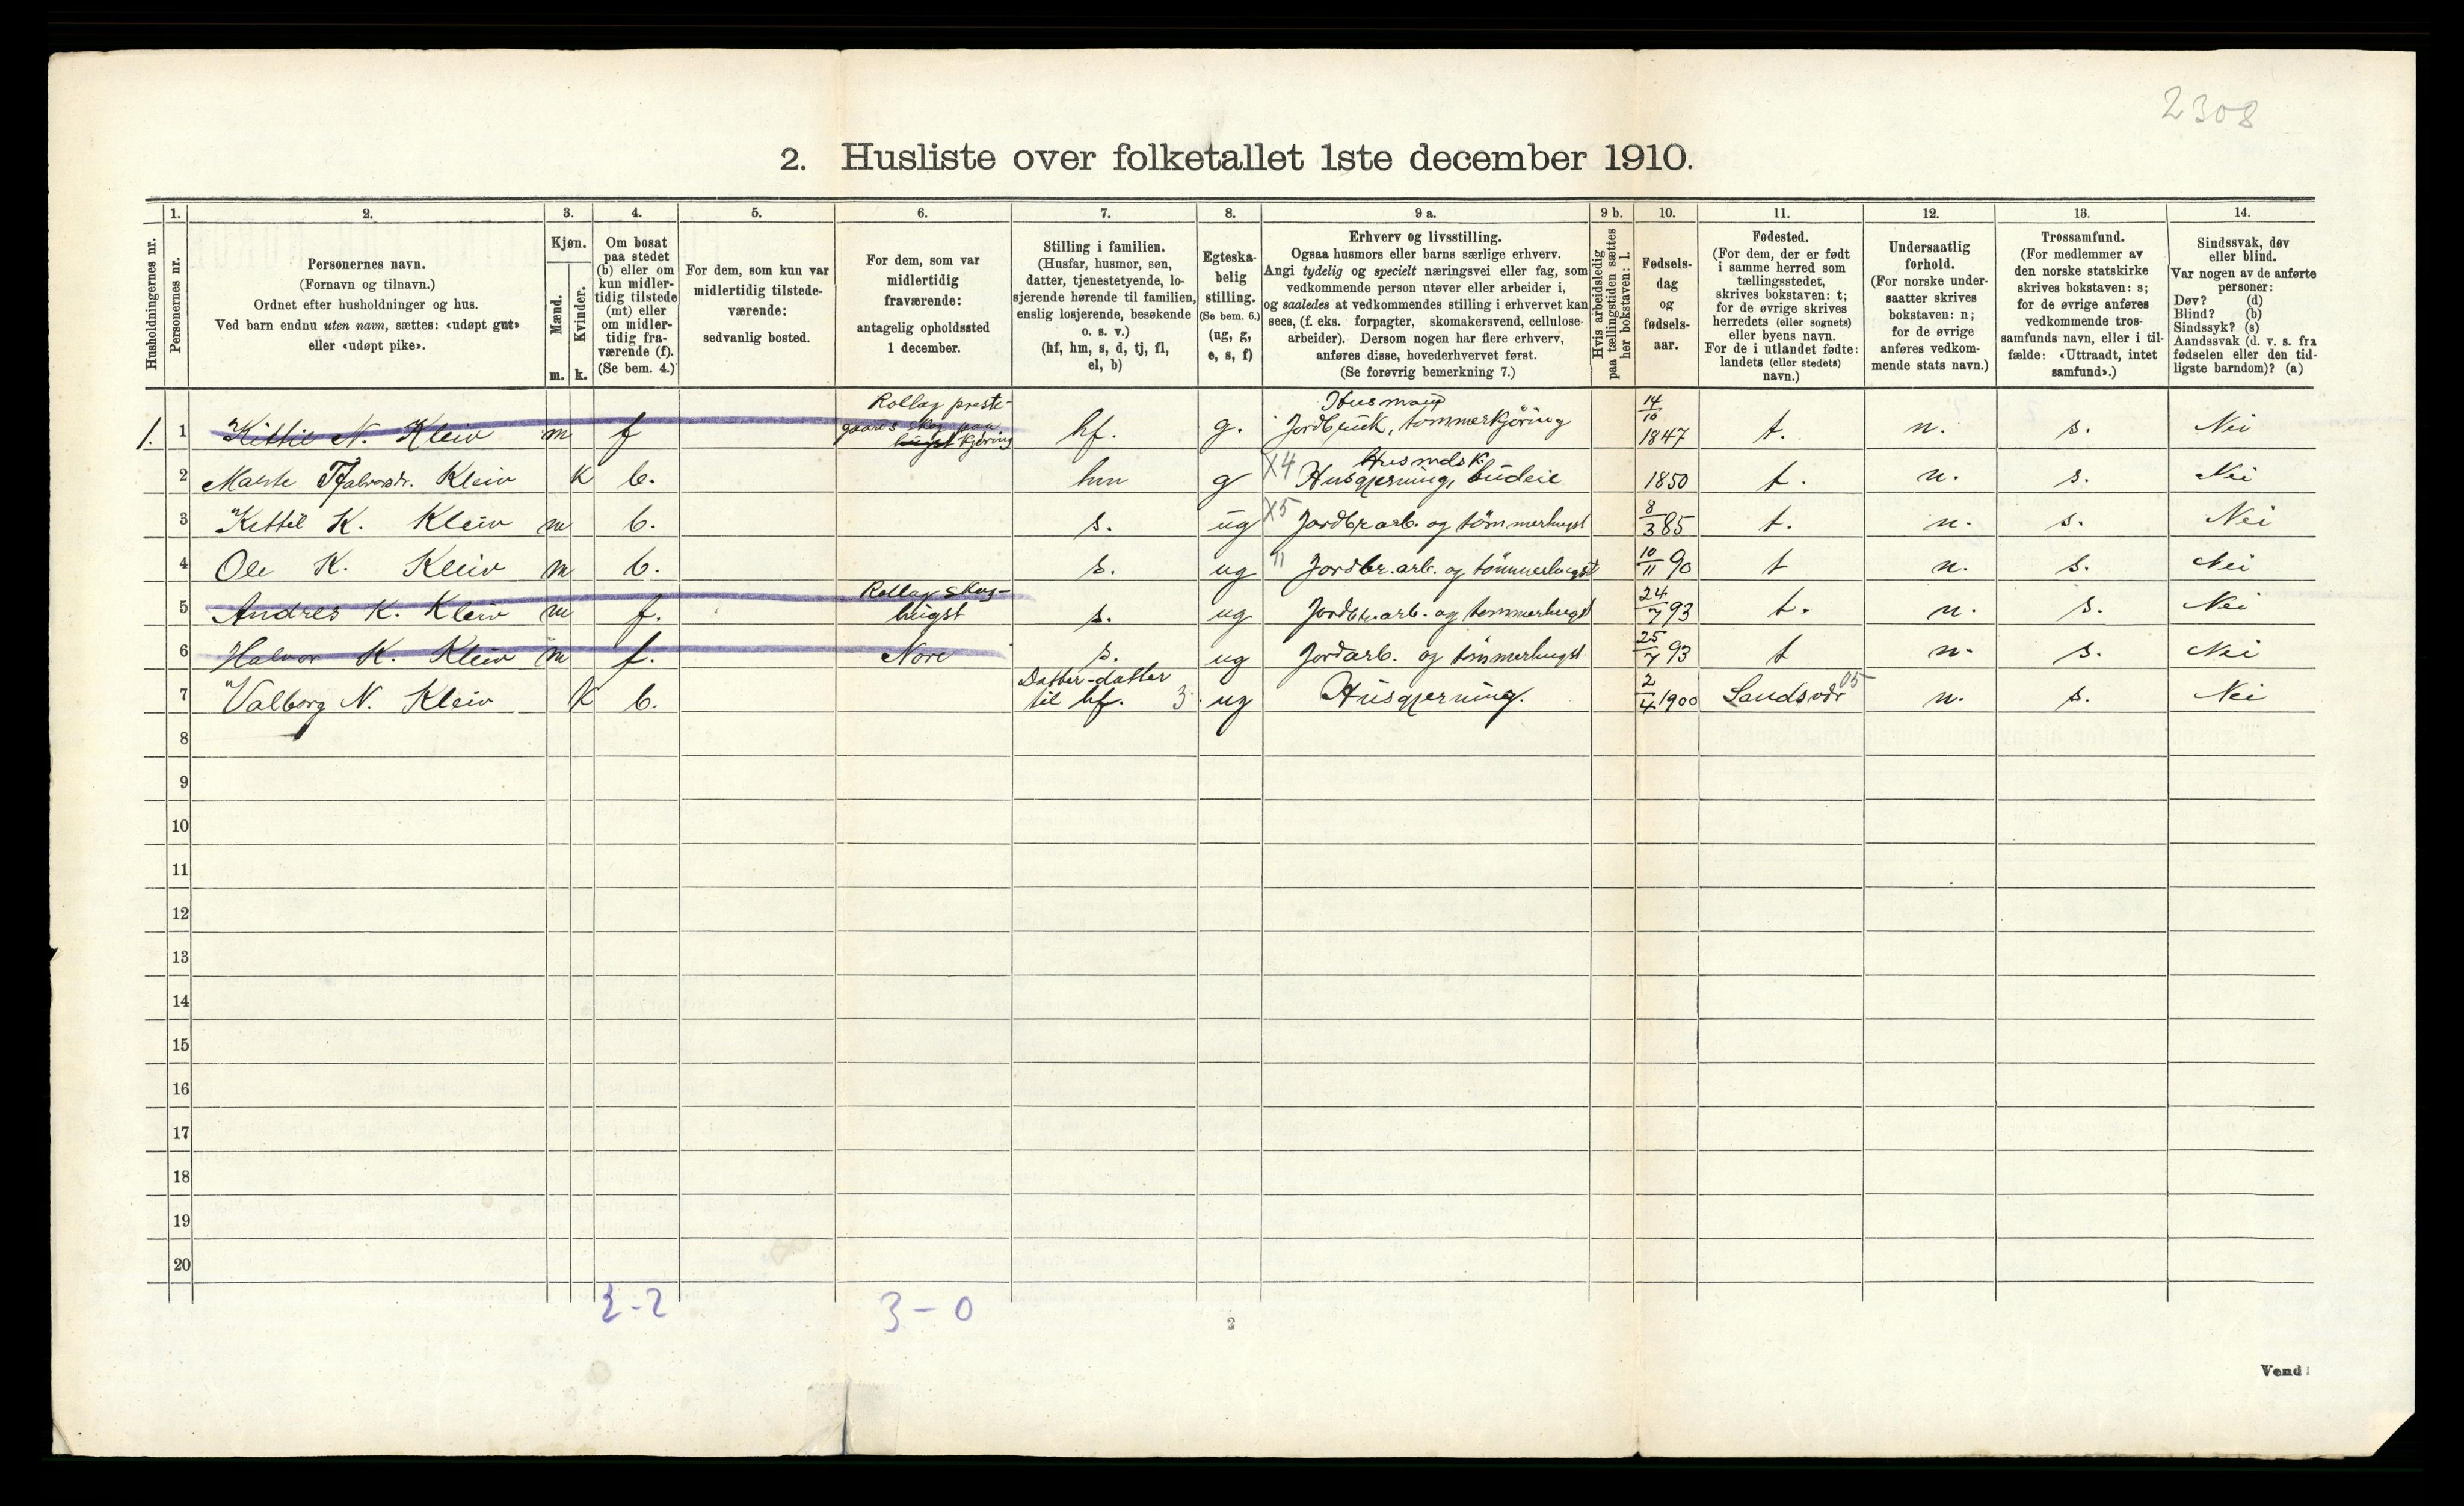 2308
2. Husliste over folketallet 1ste december 1910.
Husholdningernes nr.
1.
Personernes nr.
2.
Personernes navn.
(Fornavn og tilnavn.)
Ordnet efter husholdninger og hus.
Ved barn endnu uten navn, sættes: «udøpt gut»
eller «udøpt pike».
3.
Kjøn.
Mænd.
m.
Kvinder.
k.
4.
Om bosat
paa stedet
(b) eller om
kun midler-
tidig tilstede
(mt) eller
om midler-
tidig fra-
værende (f).
(Se bem. 4.)
5.
For dem, som kun var
midlertidig tilstede-
værende:
sedvanlig bosted.
6.
For dem, som var
midlertidig
fraværende:
antagelig opholdssted
1 december.
7.
Stilling i familien.
(Husfar, husmor, søn,
datter, tjenestetyende, lo-
sjerende hørende til familien,
enslig losjerende, besøkende
o. s. v.)
(hf, hm, s, d, tj, fl,
el, b)
8.
Egteska-
belig
stilling.
(Se bem. 6.)
(ug, g,
e, s, f)
9 a.
Erhverv og livsstilling.
Ogsaa husmors eller barns særlige erhverv.
Angi tydelig og specielt næringsvei eller fag, som
vedkommende person utøver eller arbeider i,
og saaledes at vedkommendes stilling i erhvervet kan
sees, (f. eks. forpagter, skomakersvend, cellulose-
arbeider). Dersom nogen har flere erhverv,
anføres disse, hovederhvervet først.
(Se forøvrig bemerkning 7.)
9 b.
Hvis arbeidsledig
paa tællingstiden sættes
her bokstaven: l.
10.
Fødsels-
dag
og
fødsels-
aar.
11.
Fødested.
(For dem, der er født
i samme herred som
tællingsstedet,
skrives bokstaven: t;
for de øvrige skrives
herredets (eller sognets)
eller byens navn.
For de i utlandet fødte:
landets (eller stedets)
navn.)
12.
Undersaatlig
forhold.
(For norske under-
saatter skrives
bokstaven: n;
for de øvrige
anføres vedkom-
mende stats navn.)
13.
Trossamfund.
(For medlemmer av
den norske statskirke
skrives bokstaven: s;
for de øvrige anføres
vedkommende tros-
samfunds navn, eller i til-
fælde: «Uttraadt, intet
samfund».)
14.
Sindssvak, døv
eller blind.
Var nogen av de anførte
personer:
Døv? (d)
Blind? (b)
Sindssyk? (s)
Aandssvak (d. v. s. fra
fødselen eller den tid-
ligste barndom)? (a)
Rollag preste- Husmand 14/10
1. 1 Kittil N. Kleiv m f gaards skog paa hf. g. Jordbruk, tømmerkjøring 1847 t. n. s. Nei
hugst kjøring
Husmdsk.
2 Halvorsdr. Kleiv K b. hm g X4 Husgjerning, budeie 1850 t. n. s. Nei
3 Kittil K. Kleiv m b. s. ug X5 Jordbr arb. og tømmerhugst 8/3 85 t. n. s. Nei
4 Ole K. Kleiv m b. s. ug " Jordbr. arb. og tømmerhugst 10/11 90 t n. s. Nei
Rollag skog-
5 Andres K. Kleiv m f. hugst s. ug Jordbr. arb. og tømmerhugst 24/7 93 t. n. s. Nei
6 Halvor K. Kleiv m f. Nore s. ug Jordarb. og tømmerhugst 25/7 93 t n. s. Nei
Datter-datter 05
7 Valborg N. Kleiv K b. til hf. 3 ug Husgjerning. 2/4 1900 Sandsvær n. s. Nei
8
9
10
11
12
13
14
15
16
17
18
19
20
2-2 3-0
2
Vend!